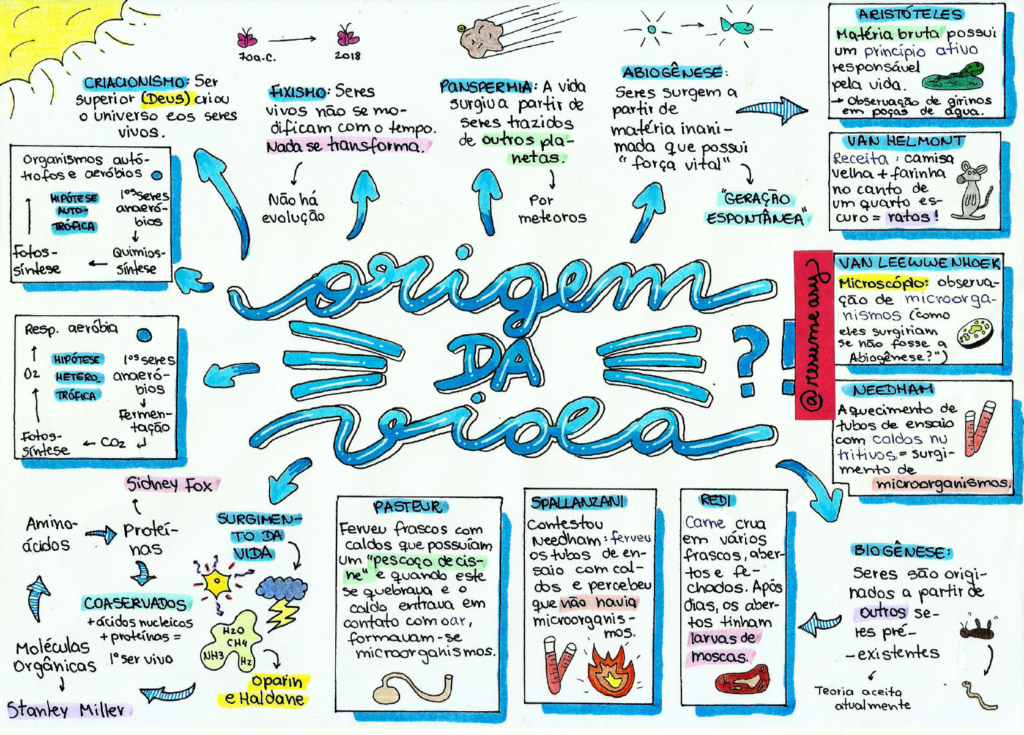 CRIACIONISMO: Ser
superior (Deus) criou
o universo e os seres
vivos.
70a.C.
2018
FIXISMO: Seres
vivos não se mo-
dificam com o tempo.
Nada se transforma.
Não há
evolução
PANSPERMIA: A vida
surgiu a partir de
seres trazidos
de outros pla-
netas.
Por
meteoros
ABIOGÊNESE:
Seres surgem a
partir de
matéria inani-
mada que possui
"força vital"
"GERAÇÃO
ESPONTÂNEA"
ARISTÓTELES
Matéria bruta possui
um princípio ativo
responsável
pela vida.
→ Observação de girinos
em poças de água.
VAN HELMONT
Receita: camisa
velha + farinha
no canto de
um quarto es-
curo = ratos!
VAN LEEWWENHOEK
Microscópio: observa-
ção de microorga-
nismos (como
eles surgiriam
se não fosse a
Abiogênese?")
NEEDHAM
Aquecimento de
tubos de ensaio
com caldos nu
tritivos = surgi-
mento de
microorganismos.
Organismos autó-
trofos e aeróbios
HIPÓTESE
AUTO-
TRÓFICA
1ºs seres
anaeró-
bios
Quimios-
síntese
Fotos-
síntese
origem
DA
vida
?!
@resumeany
Resp. aeróbia
O2
HIPÓTESE
HETERO.
TRÓFICA
1ºs seres
anaeró-
bios
Fermen-
tação
CO2
Fotos-
síntese
Sidney Fox
Amino-
ácidos
Proteí-
nas
SURGIMEN-
TO DA
VIDA
COASERVADOS
+ ácidos nucleicos
+ proteínas =
1º ser vivo
Moléculas
Orgânicas
Stanley Miller
H2O
CH4
NH3
H2
Oparin
e Haldane
PASTEUR
Ferveu frascos com
caldos que possuíam
um "pescoço de cis-
ne" e quando este
se quebrava e o
caldo entrava em
contato com o ar,
formavam-se
microorganismos.
SPALLANZANI
Contestou
Needham: ferveu
os tubos de en-
saio com cal-
dos e percebeu
que não havia
microorganis-
mos.
REDI
Carne crua
em vários
frascos, aber-
tos e fe-
chados. Após
dias, os aber-
tos tinham
larvas de
moscas.
BIOGÊNESE:
Seres são origi-
nados a partir de
outros se-
res pré-
-existentes
Teoria aceita
atualmente